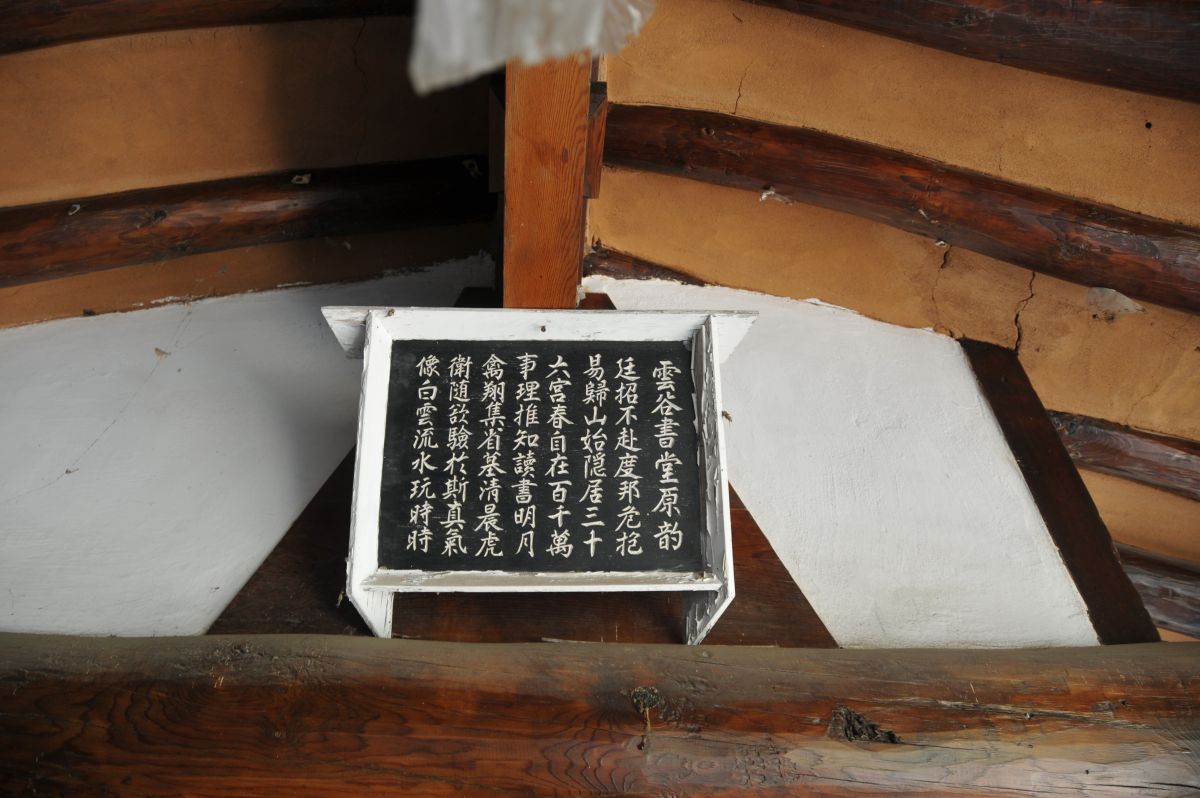 雲谷書堂原韵
廷招不赴度邦危抱
易歸山始隠居三十
六宮春自在百千萬
事理推知讀書明月
禽翔集省墓清晨虎
衛随欲驗於斯真氣
像白雲流水玩時時